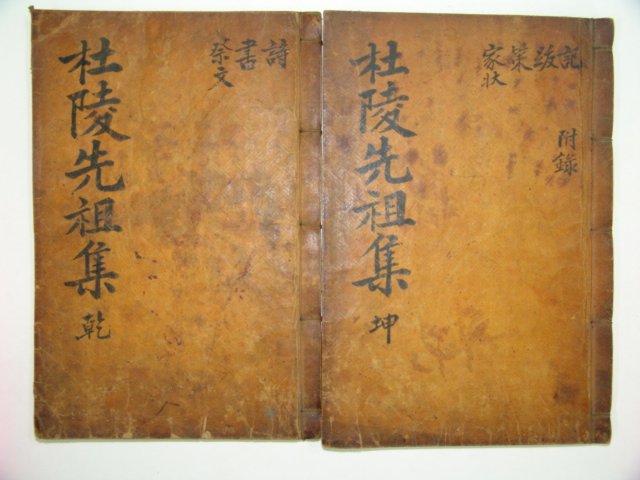 詩
書
祭文
杜陵先祖集 乾
記
跋
策
家狀
附錄
杜陵先祖集 坤